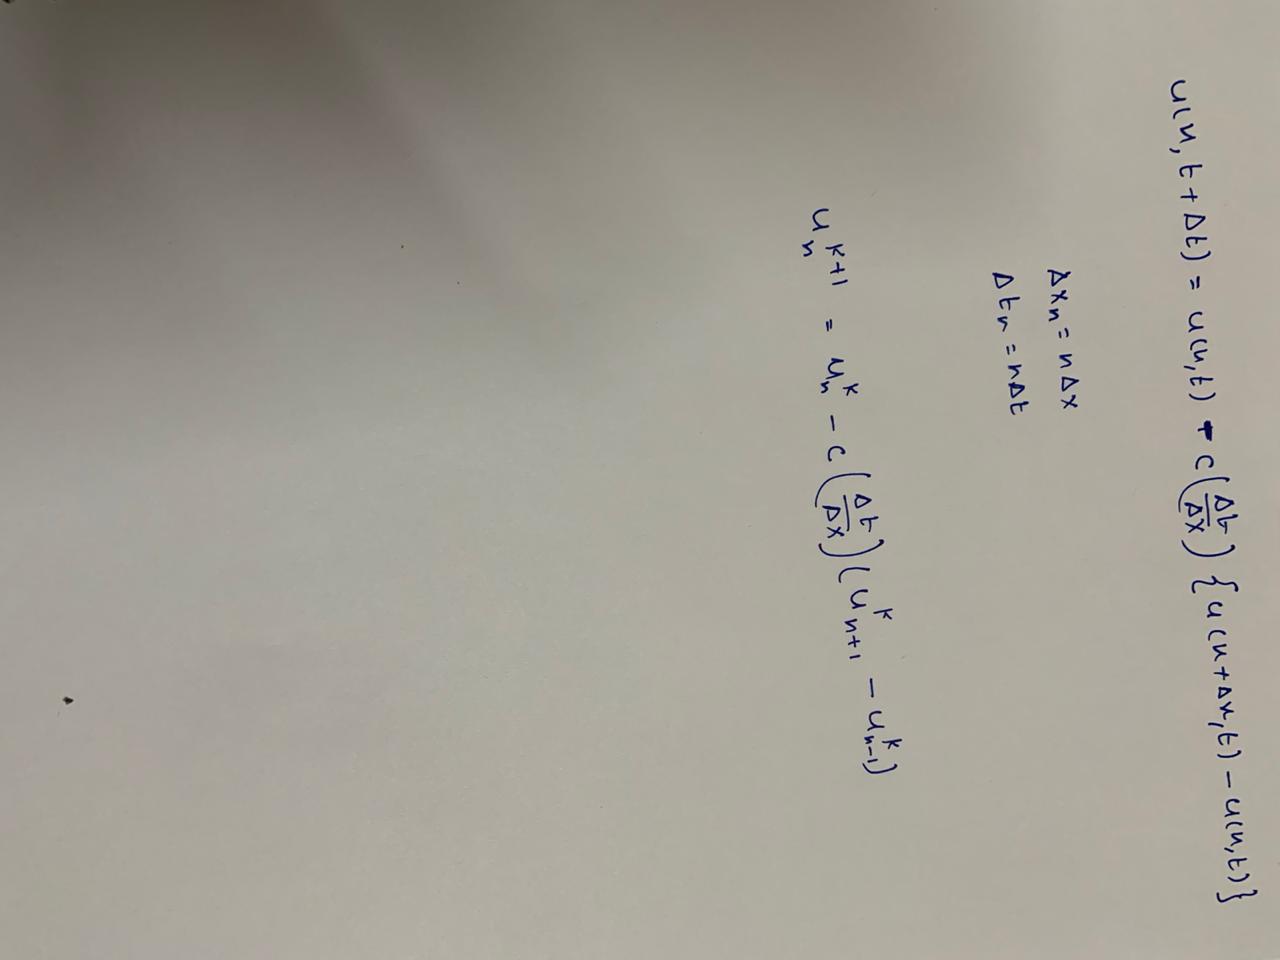 u(x, t + Δt) = u(x,t) - c(Δt/Δx) {u(x+Δx,t) - u(x,t)}
Δxₙ = nΔx
Δtₙ = nΔt
uₙᵏ⁺¹ = uₙᵏ - c(Δt/Δx)(uₙ₊₁ᵏ - uₙ₋₁ᵏ)